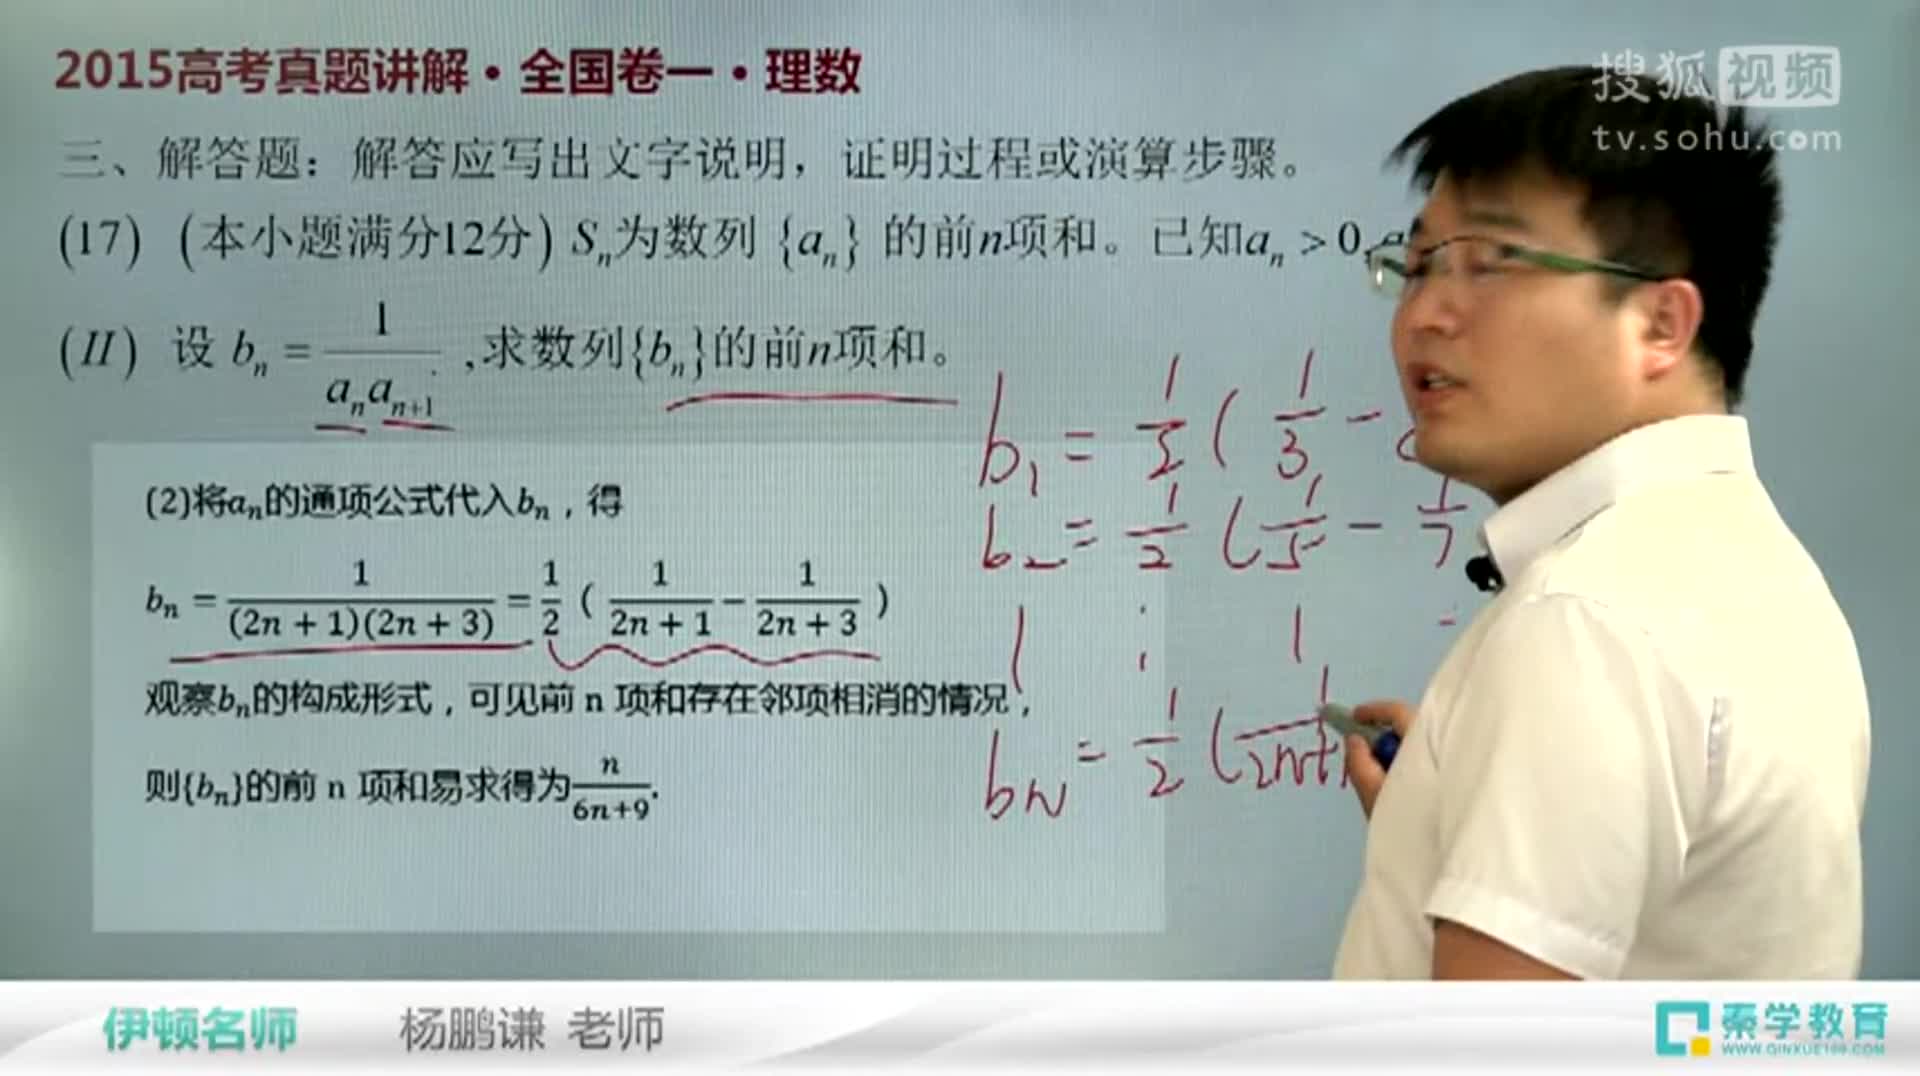 2015高考真题讲解·全国卷一·理数
搜狐视频
tv.sohu.com
三、解答题：解答应写出文字说明，证明过程或演算步骤。
(17) (本小题满分12分) Sₙ为数列 {aₙ} 的前n项和。已知aₙ > 0,
(II) 设 bₙ = 1/(aₙaₙ₊₁) ,求数列{bₙ}的前n项和。
(2)将aₙ的通项公式代入bₙ，得
bₙ = 1/((2n + 1)(2n + 3)) = 1/2 ( 1/(2n + 1) − 1/(2n + 3) )
观察bₙ的构成形式，可见前 n 项和存在邻项相消的情况，
则{bₙ}的前 n 项和易求得为n/(6n+9).
b₁ = 1/2 ( 1/3 −
b₂ = 1/2 ( 1/5 − 1/7
bn = 1/2 ( 1/(2n+1
伊顿名师 杨鹏谦 老师
秦学教育
WWW.QINXUE100.COM